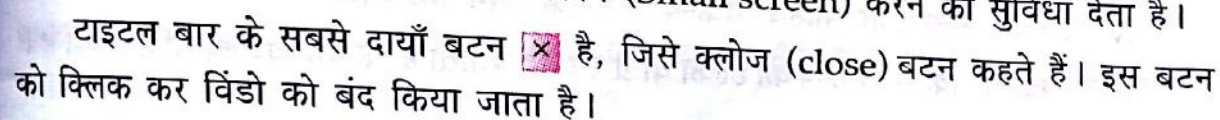 (Small screen) करने की सुविधा देता है।
टाइटल बार के सबसे दायाँ बटन × है, जिसे क्लोज (close) बटन कहते हैं। इस बटन
को क्लिक कर विंडो को बंद किया जाता है।